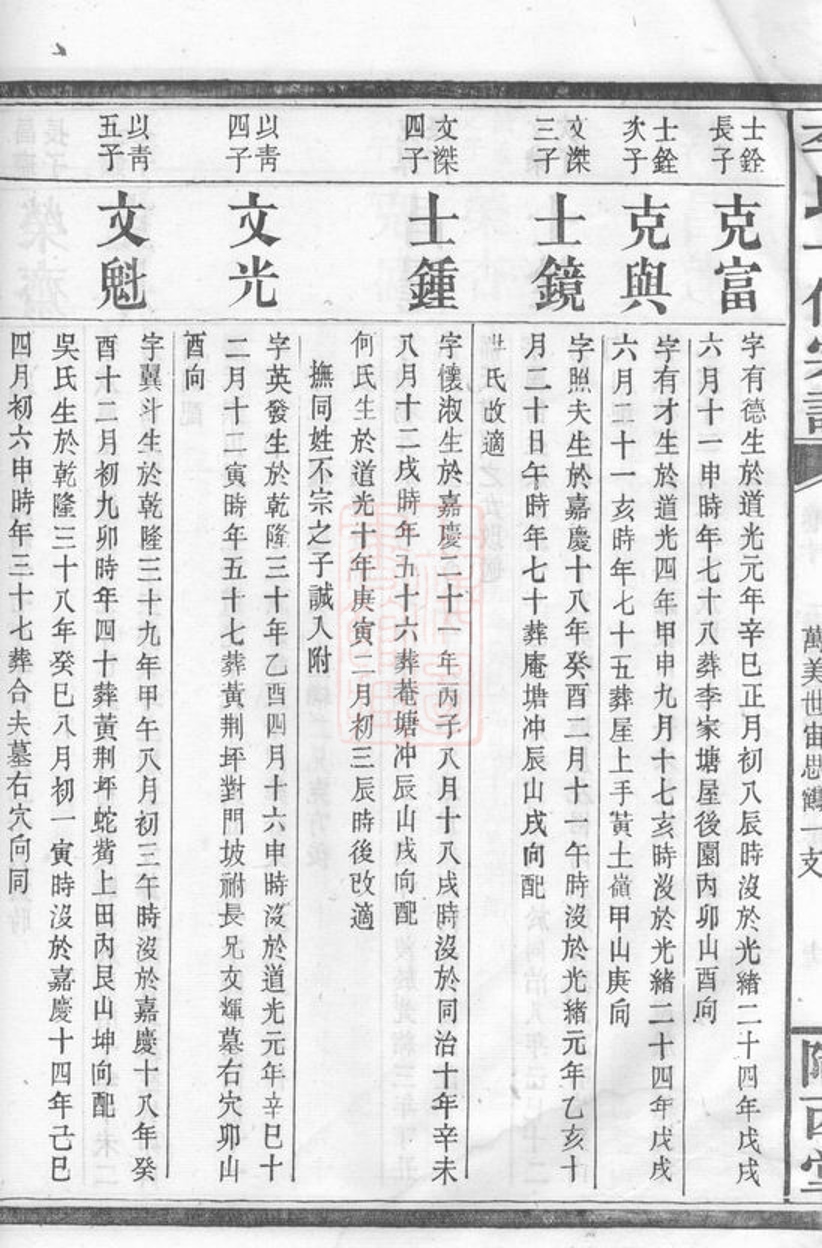 萬美世宙思鶴一支
士銓長子
克富
字有德生於道光元年辛巳正月初八辰時沒於光緒二十四年戊戌
六月十一申時年七十八葬李家塘屋後園內卯山酉向
士銓次子
克與
字有才生於道光四年甲申九月十七亥時沒於光緒二十四年戊戌
六月三十一亥時年七十五葬屋上手黃土嶺甲山庚向
文滐三子
士鏡
字照夫生於嘉慶十八年癸酉二月十一午時沒於光緒元年乙亥十
月二十日午時年七十葬庵塘冲辰山戌向配
氏改適
文滐四子
士鍾
字懷淑生於嘉慶二十一年丙子八月十八戌時沒於同治十年辛未
八月十二戌時年五十六葬菴塘冲辰山戌向配
何氏生於道光十年庚寅二月初三辰時後改適
撫同姓不宗之子誠入附
以青四子
文光
字英發生於乾隆三十年乙酉四月十六申時沒於道光元年辛巳十
二月十二寅時年五十七葬黃荆坪對門坡祔長兄文輝墓右穴卯山
酉向
以青五子
文魁
字翼斗生於乾隆三十九年甲午八月初三午時沒於嘉慶十八年癸
酉十二月初九卯時年四十葬黃荆坪蛇觜上田內艮山坤向配
吳氏生於乾隆三十八年癸巳八月初一寅時沒於嘉慶十四年己巳
四月初六申時年三十七葬合夫墓右穴向同